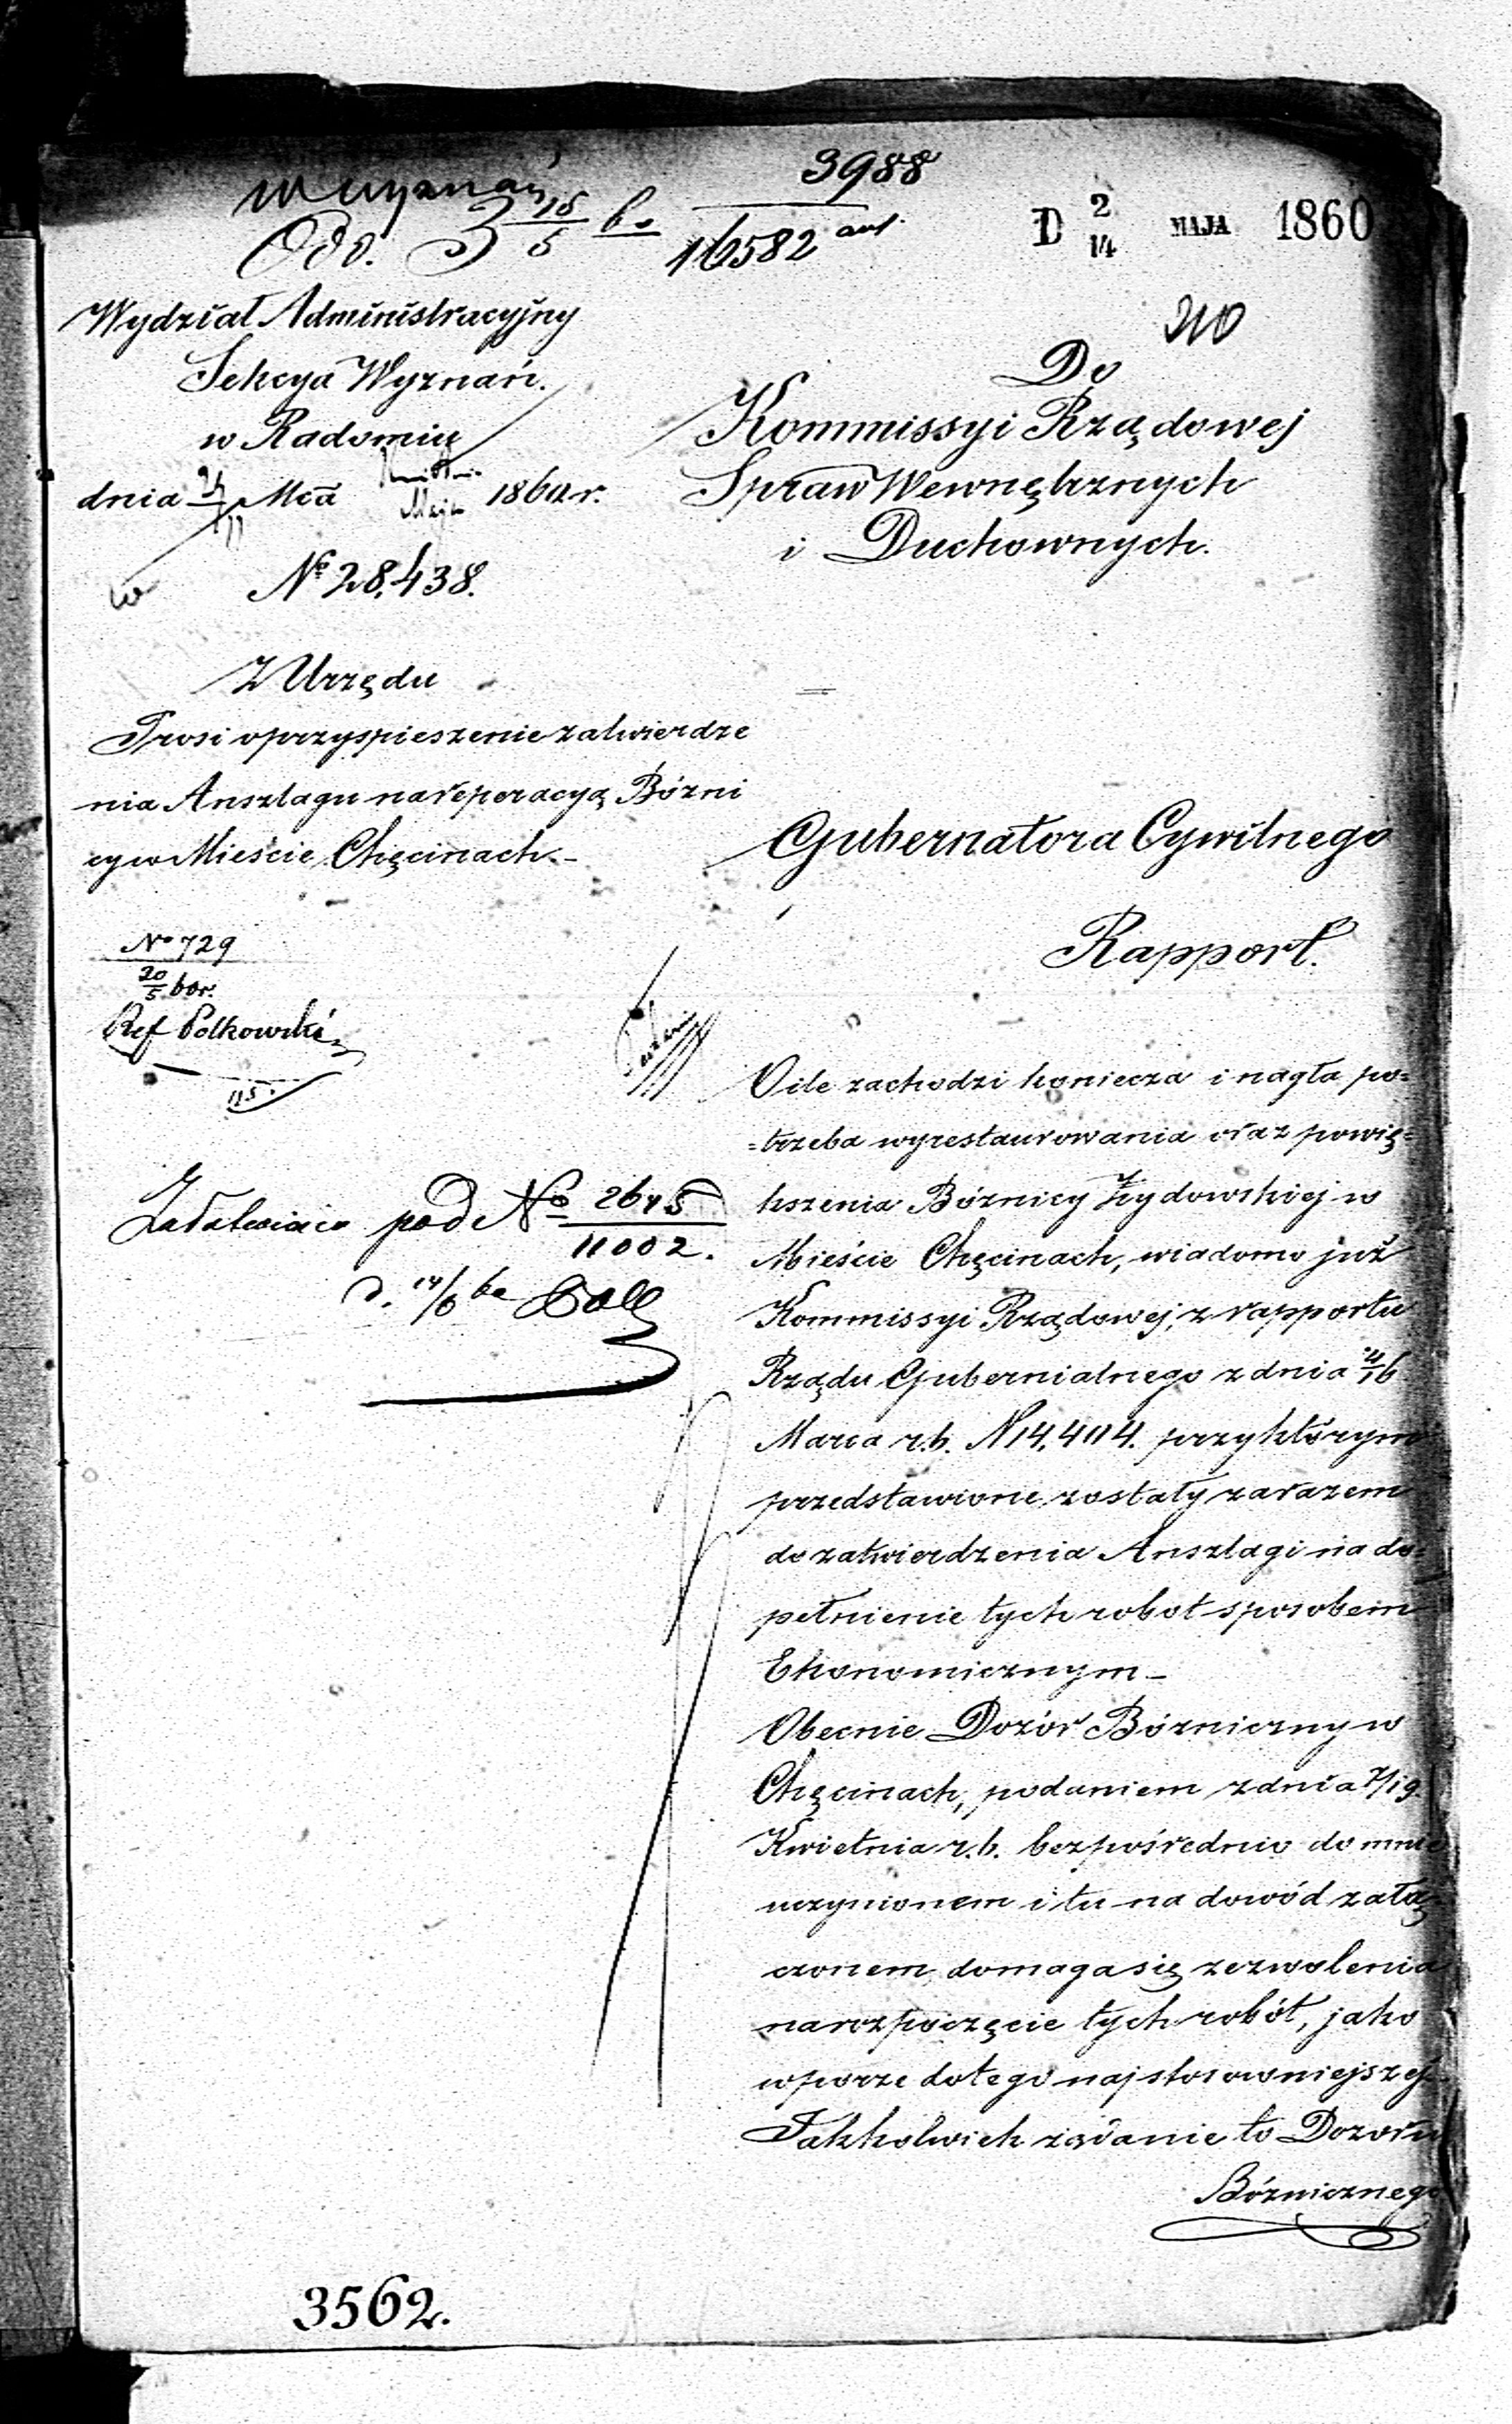 Wyznań
3988
Odd. 3 15/5 60
16582 ant.
D 2/14 MAJA 1860
210
Wydział Administracyjny
Sekcya Wyznań.
w Radomiu
dnia Mca Kwietnia Maja 1860 r.
№ 28,438.
Do
Kommissyi Rządowej
Spraw Wewnętrznych
i Duchownych.
Z Urzędu
Prosi o przyspieszenie zatwierdze
nia Anszlagu na reperacyą Bóżni
cy w Mieście Chęcinach.-
Gubernatora Cywilnego
Rapport.
No 729
20/5 60 r.
Ref Polkowski
115.
Załatwiono pod No 2645
11002.
d. 14/6 60
O ile zachodzi koniecza i nagła po=
=trzeba wyrestaurowania oraz powię=
kszenia Bóżnicy Żydowskiej w
Mieście Chęcinach, wiadomo już
Kommissyi Rządowej, z rapportu
Rządu Gubernialnego z dnia 4/16
Marca r.b. N 14,404. przy którym
przedstawione zostały zarazem
do zatwierdzenia Anszlagi na do=
pełnienie tych robot sposobem
Ekonomicznym -
Obecnie Dozór Bóżniczny w
Chęcinach, podaniem z dnia 7/19
Kwietnia r.b. bezpośrednio do mnie
uczynionem i tu na dowód załą
czonem domaga się zezwolenia
na rozpoczęcie tych robót, jako
w porze do tego najstosowniejszej.
Jakkolwiek żądanie to Dozoru
Bóżnicznego
3562.